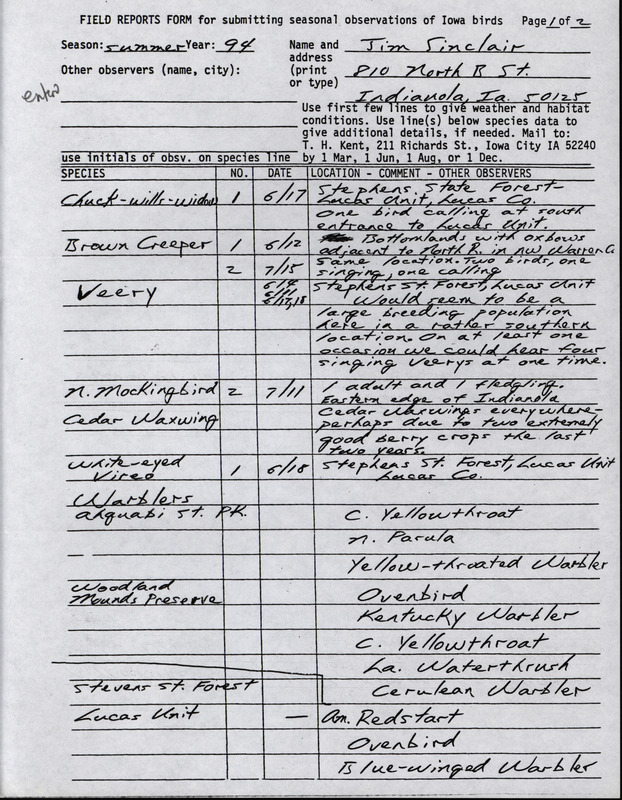 FIELD REPORTS FORM for submitting seasonal observations of Iowa birds Page 1 of 2
Season: summer Year: 94 Name and Jim Sinclair
address
Other observers (name, city): (print 810 North B St.
or type)
enter Indianola, Ia. 50125
Use first few lines to give weather and habitat
conditions. Use line(s) below species data to
give additional details, if needed. Mail to:
T. H. Kent, 211 Richards St., Iowa City IA 52240
use initials of obsv. on species line by 1 Mar, 1 Jun, 1 Aug, or 1 Dec.
SPECIES NO. DATE LOCATION - COMMENT - OTHER OBSERVERS
Chuck-wills-widow 1 6/17 Stephens State Forest-
Lucas Unit, Lucas Co.
One bird calling at south
entrance to Lucas Unit.
Brown Creeper 1 6/12 Bottomlands with oxbows
adjacent to North R. in NW Warren Co
2 7/15 Same location. Two birds, one
singing, one calling
Veery 6/17,18 Stephens St. Forest, Lucas Unit
Would seem to be a
large breeding population
here in a rather southern
location. On at least one
occasion we could hear four
singing Veerys at one time.
N. Mockingbird 2 7/11 1 adult and 1 fledgling.
Eastern edge of Indianola
Cedar Waxwing Cedar Waxwings everywhere-
perhaps due to two extremely
good berry crops the last
two years.
White-eyed
Vireo 1 6/18 Stephens St. Forest, Lucas Unit
Lucas Co.
Warblers
Ahquabi St. PK. C. Yellowthroat
N. Parula
Yellow-throated Warbler
Woodland
Mounds Preserve Ovenbird
Kentucky Warbler
C. Yellowthroat
La. Waterthrush
Stevens St. Forest Cerulean Warbler
Lucas Unit — Am. Redstart
Ovenbird
Blue-winged Warbler